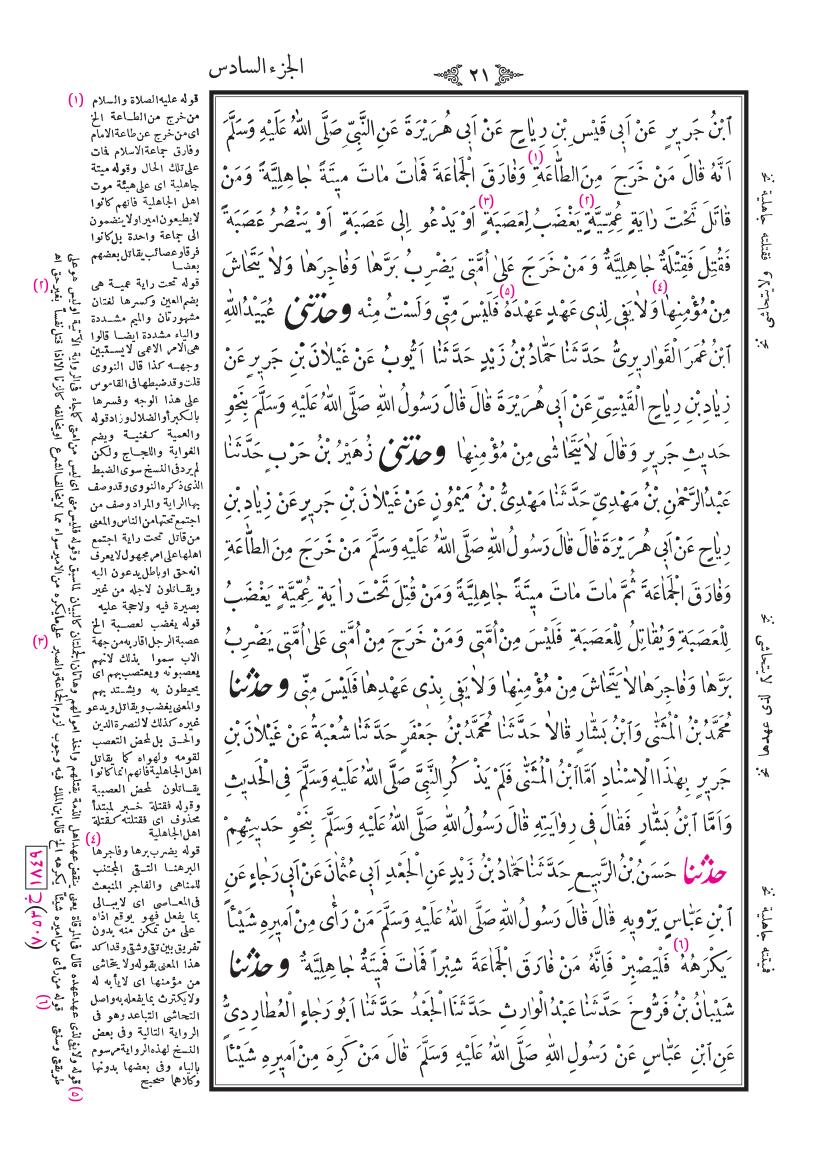 الجزء السادس
٢١
ابْنُ جَرِيرٍ عَنْ اَبِى قَيْسِ بْنِ رِيَاحٍ عَنْ اَبِى هُرَيْرَةَ عَنِ النَّبِىِّ صَلَّى اللهُ عَلَيْهِ وَسَلَّمَ
اَنَّهُ قَالَ مَنْ خَرَجَ مِنَ الطَّاعَةِ (١) وَفَارَقَ الْجَمَاعَةَ فَمَاتَ مَاتَ مِيتَةً جَاهِلِيَّةً وَمَنْ
قَاتَلَ تَحْتَ رَايَةٍ عُمِّيَّةٍ (٢) يَغْضَبُ لِعَصَبَةٍ (٣) اَوْ يَدْعُو اِلَى عَصَبَةٍ اَوْ يَنْصُرُ عَصَبَةً
فَقُتِلَ فَقِتْلَةٌ جَاهِلِيَّةٌ وَمَنْ خَرَجَ عَلَى اُمَّتِى يَضْرِبُ بَرَّهَا وَفَاجِرَهَا وَلَا يَتَحَاشَ
مِنْ مُؤْمِنِهَا (٤) وَلَا يَفِى لِذِى عَهْدٍ عَهْدَهُ (٥) فَلَيْسَ مِنِّى وَلَسْتُ مِنْهُ وحدثنى عُبَيْدُاللهِ
ابْنُ عُمَرَ الْقَوَارِيرِىُّ حَدَّثَنَا حَمَّادُ بْنُ زَيْدٍ حَدَّثَنَا اَيُّوبُ عَنْ غَيْلَانَ بْنِ جَرِيرٍ عَنْ
زِيَادِ بْنِ رِيَاحٍ الْقَيْسِىِّ عَنْ اَبِى هُرَيْرَةَ قَالَ قَالَ رَسُولُ اللهِ صَلَّى اللهُ عَلَيْهِ وَسَلَّمَ بِنَحْوِ
حَدِيثِ جَرِيرٍ وَقَالَ لَا يَتَحَاشَى مِنْ مُؤْمِنِهَا وحدثنى زُهَيْرُ بْنُ حَرْبٍ حَدَّثَنَا
عَبْدُ الرَّحْمٰنِ بْنُ مَهْدِىٍّ حَدَّثَنَا مَهْدِىُّ بْنُ مَيْمُونٍ عَنْ غَيْلَانَ بْنِ جَرِيرٍ عَنْ زِيَادِ بْنِ
رِيَاحٍ عَنْ اَبِى هُرَيْرَةَ قَالَ قَالَ رَسُولُ اللهِ صَلَّى اللهُ عَلَيْهِ وَسَلَّمَ مَنْ خَرَجَ مِنَ الطَّاعَةِ
وَفَارَقَ الْجَمَاعَةَ ثُمَّ مَاتَ مَاتَ مِيتَةً جَاهِلِيَّةً وَمَنْ قُتِلَ تَحْتَ رَايَةٍ عُمِّيَّةٍ يَغْضَبُ
لِلْعَصَبَةِ وَيُقَاتِلُ لِلْعَصَبَةِ فَلَيْسَ مِنْ اُمَّتِى وَمَنْ خَرَجَ مِنْ اُمَّتِى عَلَى اُمَّتِى يَضْرِبُ
بَرَّهَا وَفَاجِرَهَا لَا يَتَحَاشَ مِنْ مُؤْمِنِهَا وَلَا يَفِى بِذِى عَهْدِهَا فَلَيْسَ مِنِّى وحدثنا
مُحَمَّدُ بْنُ الْمُثَنَّى وَابْنُ بَشَّارٍ قَالَا حَدَّثَنَا مُحَمَّدُ بْنُ جَعْفَرٍ حَدَّثَنَا شُعْبَةُ عَنْ غَيْلَانَ بْنِ
جَرِيرٍ بِهٰذَا الْاِسْنَادِ اَمَّا ابْنُ الْمُثَنَّى فَلَمْ يَذْكُرِ النَّبِىَّ صَلَّى اللهُ عَلَيْهِ وَسَلَّمَ فِى الْحَدِيثِ
وَاَمَّا ابْنُ بَشَّارٍ فَقَالَ فِى رِوَايَتِهِ قَالَ رَسُولُ اللهِ صَلَّى اللهُ عَلَيْهِ وَسَلَّمَ بِنَحْوِ حَدِيثِهِمْ
حدثنا حَسَنُ بْنُ الرَّبِيعِ حَدَّثَنَا حَمَّادُ بْنُ زَيْدٍ عَنِ الْجَعْدِ اَبِى عُثْمَانَ عَنْ اَبِى رَجَاءٍ عَنِ
ابْنِ عَبَّاسٍ يَرْوِيهِ قَالَ قَالَ رَسُولُ اللهِ صَلَّى اللهُ عَلَيْهِ وَسَلَّمَ مَنْ رَأَى مِنْ اَمِيرِهِ شَيْئًا
يَكْرَهُهُ (٦) فَلْيَصْبِرْ فَاِنَّهُ مَنْ فَارَقَ الْجَمَاعَةَ شِبْرًا فَمَاتَ فَمِيتَةٌ جَاهِلِيَّةٌ وحدثنا
شَيْبَانُ بْنُ فَرُّوخَ حَدَّثَنَا عَبْدُ الْوَارِثِ حَدَّثَنَا الْجَعْدُ حَدَّثَنَا اَبُو رَجَاءٍ الْعُطَارِدِىُّ
عَنِ ابْنِ عَبَّاسٍ عَنْ رَسُولِ اللهِ صَلَّى اللهُ عَلَيْهِ وَسَلَّمَ قَالَ مَنْ كَرِهَ مِنْ اَمِيرِهِ شَيْئًا
(١) قوله عليه الصلاة والسلام
من خرج من الطاعة الخ
اى من خرج عن طاعة الامام
وفارق جماعة الاسلام فمات
على تلك الحال وقوله ميتة
جاهلية اى على هيئة موت
اهل الجاهلية فانهم كانوا
لا يطيعون اميرا ولا ينضمون
الى جماعة واحدة بل كانوا
فرقا وعصائب يقاتل بعضهم
بعضا
(٢) قوله تحت راية عمية هى
بضم العين وكسرها لغتان
مشهورتان والميم مشددة
والياء مشددة ايضا قالوا
هى الامر الاعمى لا يستبين
وجهه كذا قال النووى
قلت وقد ضبطها فى القاموس
على هذا الوجه وفسرها
بالكبر أو الضلال وزاد قوله
والعمية كغنية ويضم
الغواية واللجاج ولكن
لم يرد فى النسخ سوى الضبط
الذى ذكره النووى وقد وصف
بها الراية والمراد وصف من
اجتمع تحتها من الناس والمعنى
من قاتل تحت راية اجتمع
اهلها على امر مجهول لا يعرف
انه حق او باطل يدعون اليه
ويقاتلون لاجله من غير
بصيرة فيه ولا حجة عليه
(٣) قوله يغضب لعصبة الخ
عصبة الرجل اقاربه من جهة
الاب سموا بذلك لانهم
يعصبونه ويعتصب بهم اى
يحيطون به ويشتد بهم
والمعنى يغضب ويقاتل ويدعو
غيره كذلك لا لنصرة الدين
والحق بل لمحض التعصب
لقومه ولهواه كما يقاتل
اهل الجاهلية فانهم انما كانوا
يقاتلون لمحض العصبية
وقوله فقتلة خبر لمبتدأ
محذوف اى فقتلته كقتلة
اهل الجاهلية
(٤) قوله يضرب برها وفاجرها
البر هنا التقى المجتنب
للمناهى والفاجر المنبعث
فى المعاصى اى لا يبالى
بما يفعل فهو يوقع اذاه
على من تمكن منه بدون
تفريق بين تقى وشقى وقد اكد
هذا المعنى بقوله ولا يتحاشى
من مؤمنها اى لا يأبه له
ولا يكترث بما يفعله به واصل
التحاشى التباعد وهو فى
الرواية التالية وفى بعض
النسخ لهذه الرواية مرسوم
بالياء وفى بعضها بدونها
وكلاهما صحيح
(٥) قوله ولا يفى لذى عهد عهده
(٦) قوله من رأى من اميره شيئا يكرهه الخ
نخ فقتلته جاهلية
نخ لا يتحاشى
نخ فميتته جاهلية